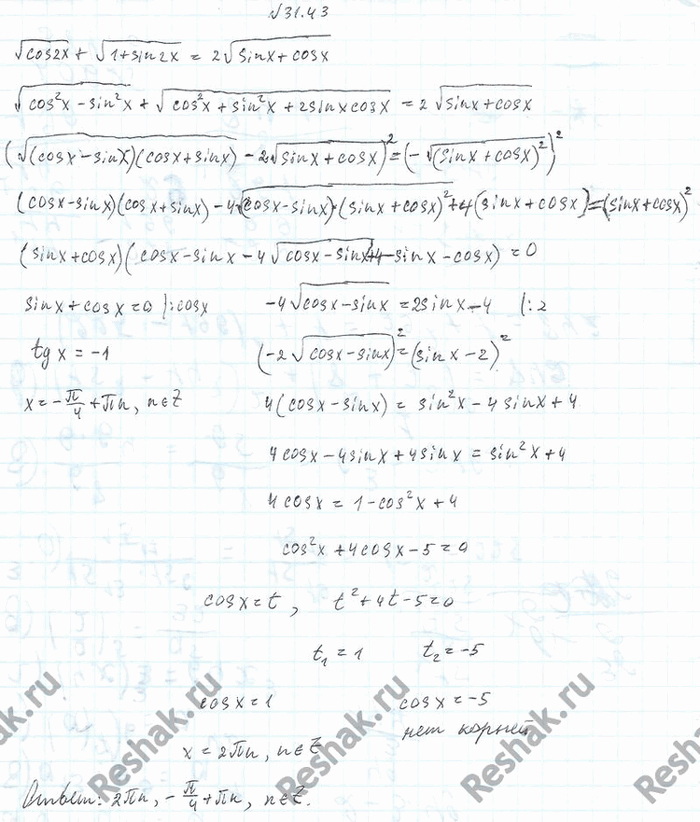 √31.43
√cos2x + √1+sin2x = 2√sinx + cosx
√cos²x - sin²x + √cos²x + sin²x + 2sinxcosx = 2√sinx+cosx
(√(cosx - sinx)(cosx+sinx) - 2√sinx + cosx)² = (-√(sinx + cosx)²)²
(cosx-sinx)(cosx+sinx) - 4√(cosx-sinx)·(sinx+cosx)² + 4(sinx+cosx) = (sinx+cosx)²
(sinx+cosx)(cosx-sinx - 4√cosx-sinx + 4 - sinx - cosx) = 0
sinx + cosx = 0 |:cosx -4√cosx-sinx = 2sinx-4 (:2
tg x = -1 (-2√cosx-sinx)² = (sinx-2)²
x = -π/4 + πn, n∈Z 4(cosx-sinx) = sin²x - 4sinx + 4
4cosx - 4sinx + 4sinx = sin²x + 4
4cosx = 1-cos²x + 4
cos²x + 4cosx - 5 = 0
cosx = t, t² + 4t - 5 = 0
t₁ = 1 t₂ = -5
cosx = 1 cosx = -5
нет корней
x = 2πn, n∈Z
Ответ: 2πn, -π/4 + πn, n∈Z.
Reshak.ru
Reshak.ru
Reshak.ru
Reshak.ru